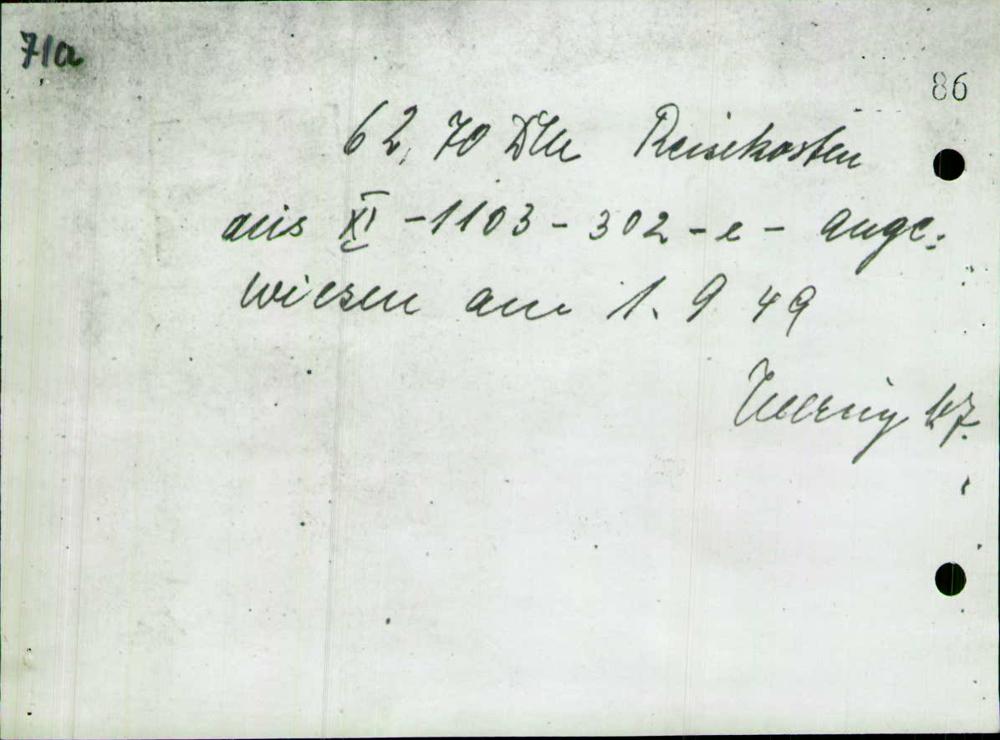 71a
86
62,70 DM Reisekosten
aus XI -1103-302-e- ange-
wiesen am 1. 9 49